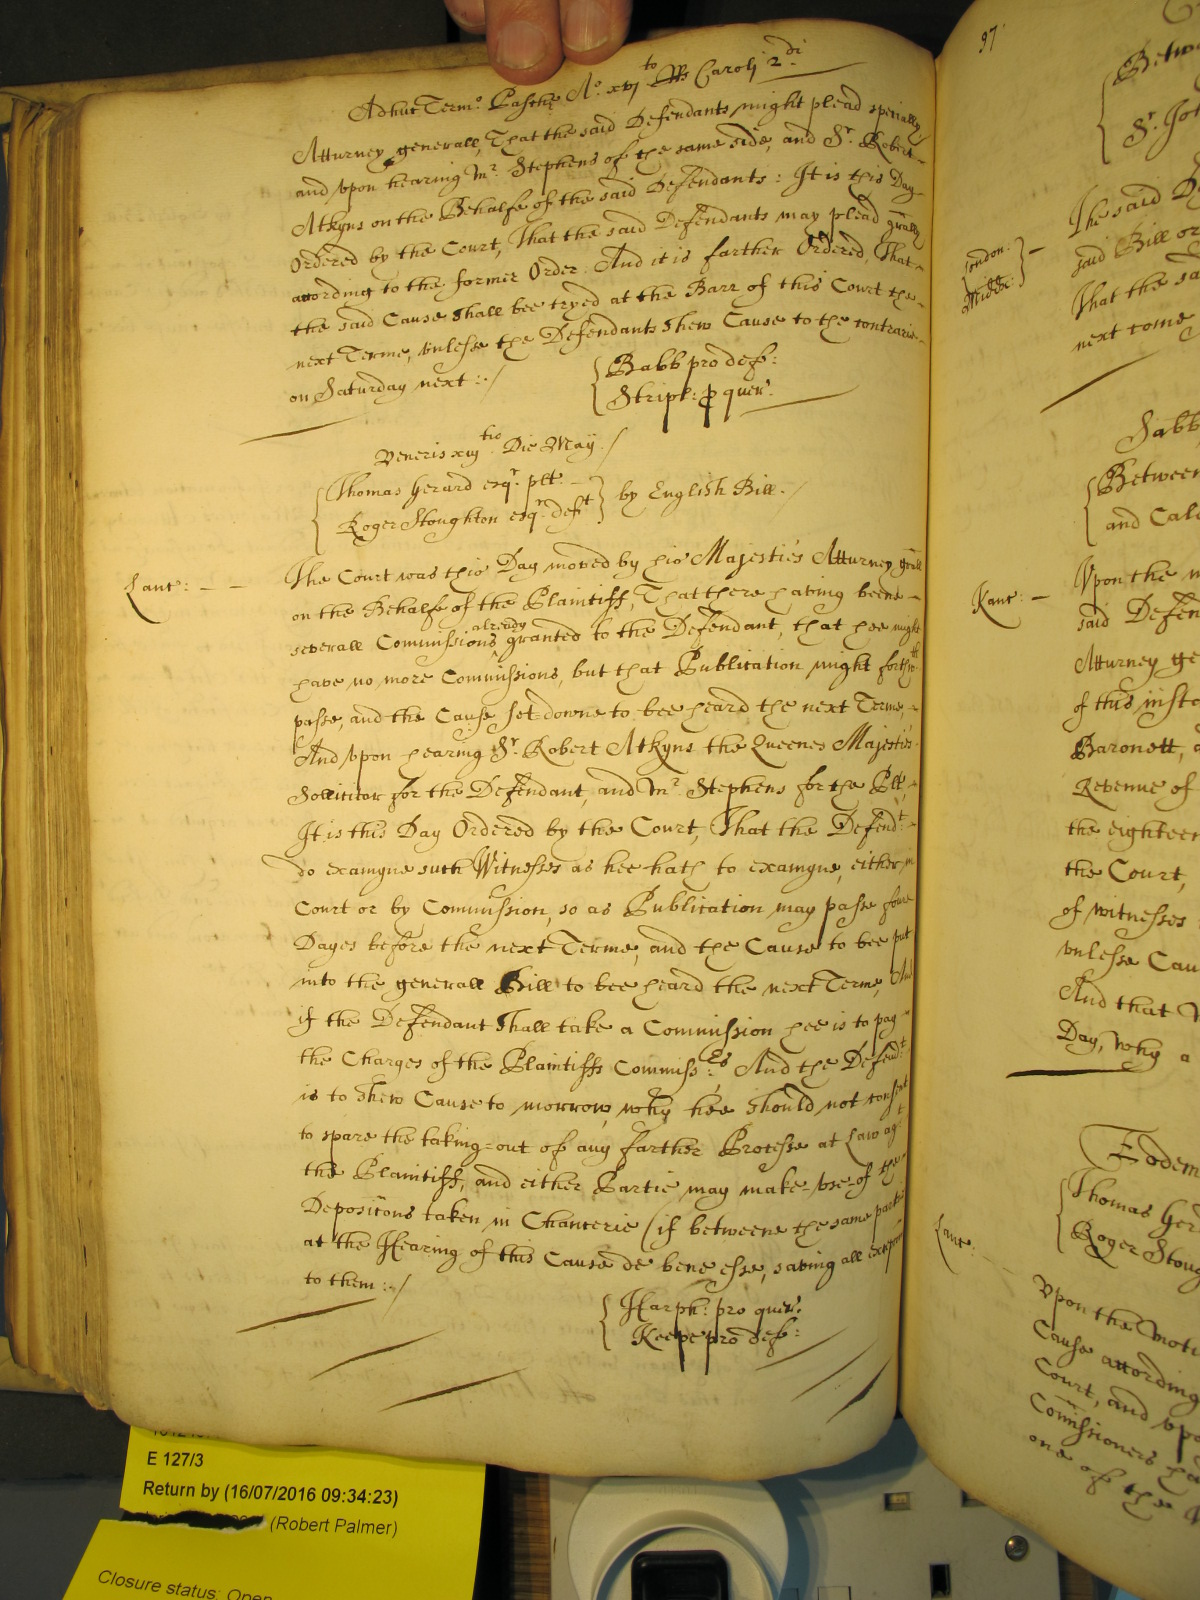 Adhuc Term.o Pasche A.o xvj to R Rs Caroli 2.di
Atturney generall, That the said Defendants might plead specially
and vpon hearing Mr. Stephens of the same side, and Sr. Robert
Atkyns on the Behalfe of the said Defendants: It is this Day
Ordered by the Court, That the said Defendants may plead gñally
according to the former Order. And it is farther Ordered, That
the said Cause shall bee tryed at the Barr of this Court the
next Terme, vnlesse the Defendants shew Cause to the contrarie
on Saturday next :./
Babb pro def:
Stripl: p quer.
Veneris xiij tio Die Maij. /
Thomas Gerard esqr. plt. -
Roger Stoughton esqr. deft
by English Bill. /
Lanc: - -
The Court was this Day moved by his Majesties Atturney gñall
on the Behalfe of the Plaintiff, That there having beene
severall Commissions already granted to the Defendant, that hee might
have no more Commissions, but that Publication might forthwth
passe, and the Cause set-downe to bee heard the next Terme,
And vpon hearing Sr. Robert Atkyns the Queenes Majesties
Sollicitor for the Defendant, and Mr. Stephens for the Plt,
It is this Day Ordered by the Court, That the Defend.t
do examyne such Witnesses as hee hath to examyne, either in
Court or by Commission, so as Publication may passe foure
Dayes before the next Terme, and the Cause to bee put
into the generall Bill to bee heard the next Terme, And
if the Defendant shall take a Commission hee is to pay
the Charges of the Plaintiffs Commiss:rs And the Defend.t
is to shew Cause to morrow, why hee should not consent
to spare the taking-out of any farther Processe at Law agt
the Plaintiff, and either Partie may make-vse-of the
Deposicons taken in Chancerie (if betweene the same parties
at the Hearing of this Cause de bene esse, saving all excepcons
to them :./
Harph: pro quer.
Keepe pro def:
97
Betw
Sr. Joh
London.
Middx:
The said D
said Bill or
That the sa
next come
Sabb
Between
and Cal
Kanc: -
Vpon the m
said Defen
Atturney ge
of this insta
Baronett, a
Revenue of
the eighteen
the Court,
of witnesses
vnlesse Cau
And that
Day, why a
Eodem
Thomas Ger
Roger Stoug
Lanc:
Vpon the Moti
Cause according
Court, and vpo
Comissioners
one of the
E 127/3
Return by (16/07/2016 09:34:23)
(Robert Palmer)
Closure status: Open